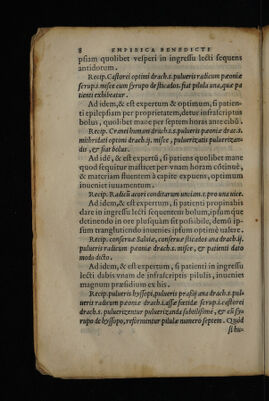 8 EMPIRICA BENEDICTI
psiam quolibet vesperi in ingressu lecti sequens
antidotum.
Recip. Castorei optimi drach.s. pulueris radicum pæoniæ
scrup.s. misce cum syrupo de sticados. fiat pilula una, quæ pa
tienti exhibeatur.
Ad idem, & est expertum & optimum, si patien-
ti epilepsiam per proprietatem, detur infrascriptus
bolus, quolibet mane per septem horas antecibū.
Recip. Cranei humani drach.s. pulueris pæoniæ drac.s.
mithridati optimi drach.ij. misce, pulverizati pulverizan-
dis, & fiat bolus.
Ad idē, & est expertū, si patiens quolibet mane
quod sequitur masticet per vnam horam cōtinuè,
& materiam fluentem à capite expuens, optimum
inueniet iuuamentum.
Recip. Radicū acori conditarum vnciam.s. pro una vice.
Ad idem, & est expertum, si patienti propinabis
dare in ingressu lecti sequentem bolum, ipsum que
detinendo in ore plusquàm sit possibile, demū ip-
sum transglutiendo inuenies ipsum optimè valere.
Recip. conseruæ Saluiæ, conseruæ sticados ana drach.ij.
pulueris radicum pæoniæ drach.s. misce, & patienti dato
modo dicto.
Ad idem, & est expertum, si patienti in ingressu
lecti dabis vnam de infrascriptis pilulis, inueniet
magnum præsidium ex his.
Recip. pulueris hyssopi, pulueris prassij ana drach.s. pul-
ueris radicum pæoniæ drach.s. assæ fœtidæ scrup.s. castorei
drach.s. pulverizentur pulverizanda subtilissimè, & cū sy-
rupo de hyssopo, reformentur pilulæ numero septem. Quòd
si hu-